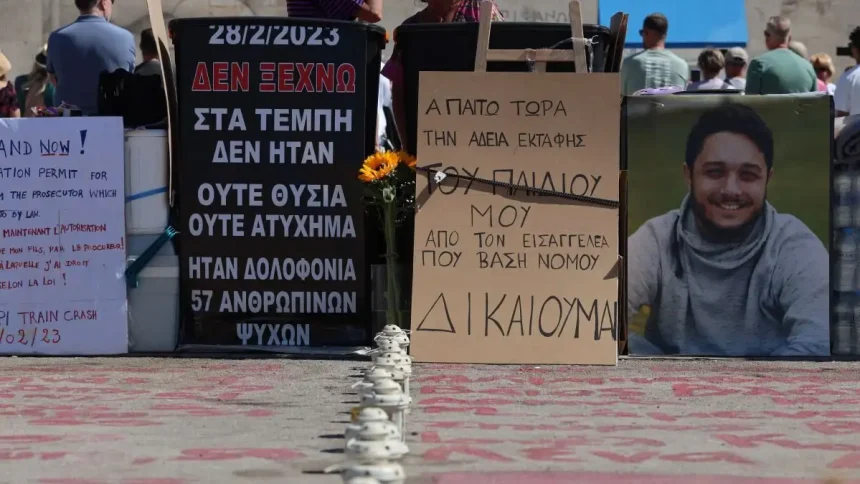 AND NOW !
ATION PERMIT FOR
M THE PROSECUTOR WHICH
TO BY LAW.
MAINTENANT L'AUTORISATION
DE MON FILS, PAR LE PROCUREUR!
À LAQUELLE J'AI DROIT
SELON LA LOI !
PI TRAIN CRASH
/02/23
28/2/2023
ΔΕΝ ΞΕΧΝΩ
ΣΤΑ ΤΕΜΠΗ
ΔΕΝ ΗΤΑΝ
ΟΥΤΕ ΘΥΣΙΑ
ΟΥΤΕ ΑΤΥΧΗΜΑ
ΗΤΑΝ ΔΟΛΟΦΟΝΙΑ
57 ΑΝΘΡΩΠΙΝΩΝ
ΨΥΧΩΝ
ΑΠΑΙΤΟ ΤΩΡΑ
ΤΗΝ ΑΔΕΙΑ ΕΚΤΑΦΗΣ
ΤΟΥ ΠΑΙΔΙΟΥ
ΜΟΥ
ΑΠΟ ΤΟΝ ΕΙΣΑΓΓΕΛΕΑ
ΠΟΥ ΒΑΣΗ ΝΟΜΟΥ
ΔΙΚΑΙΟΥΜΑΙ